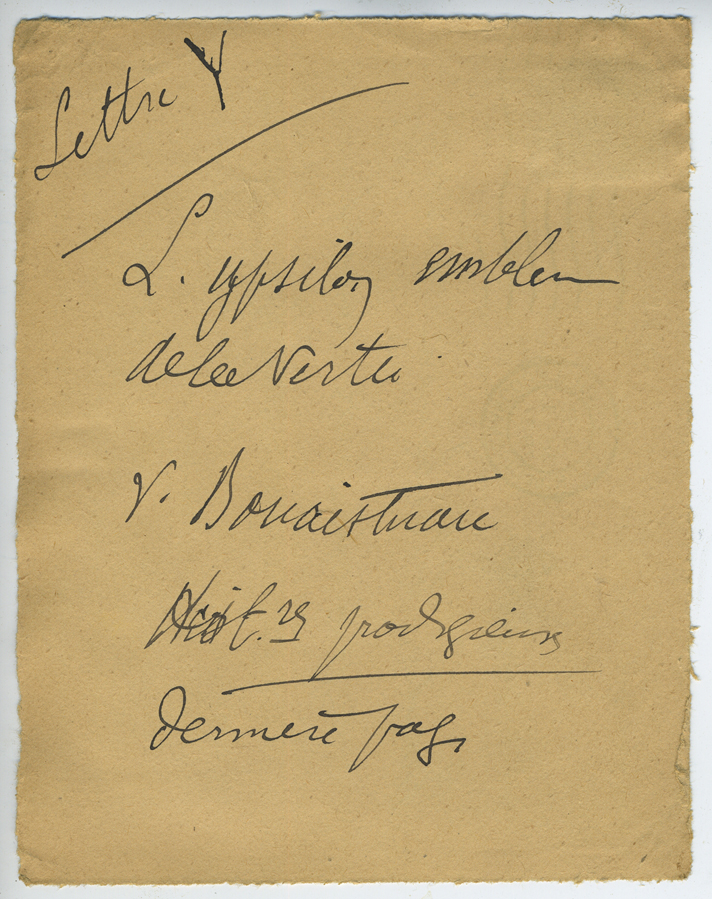 Lettre Y
L. ypsilon emblem
de la Vertu
V. Bouaistuau
Hist. res prodigieux
dernière page